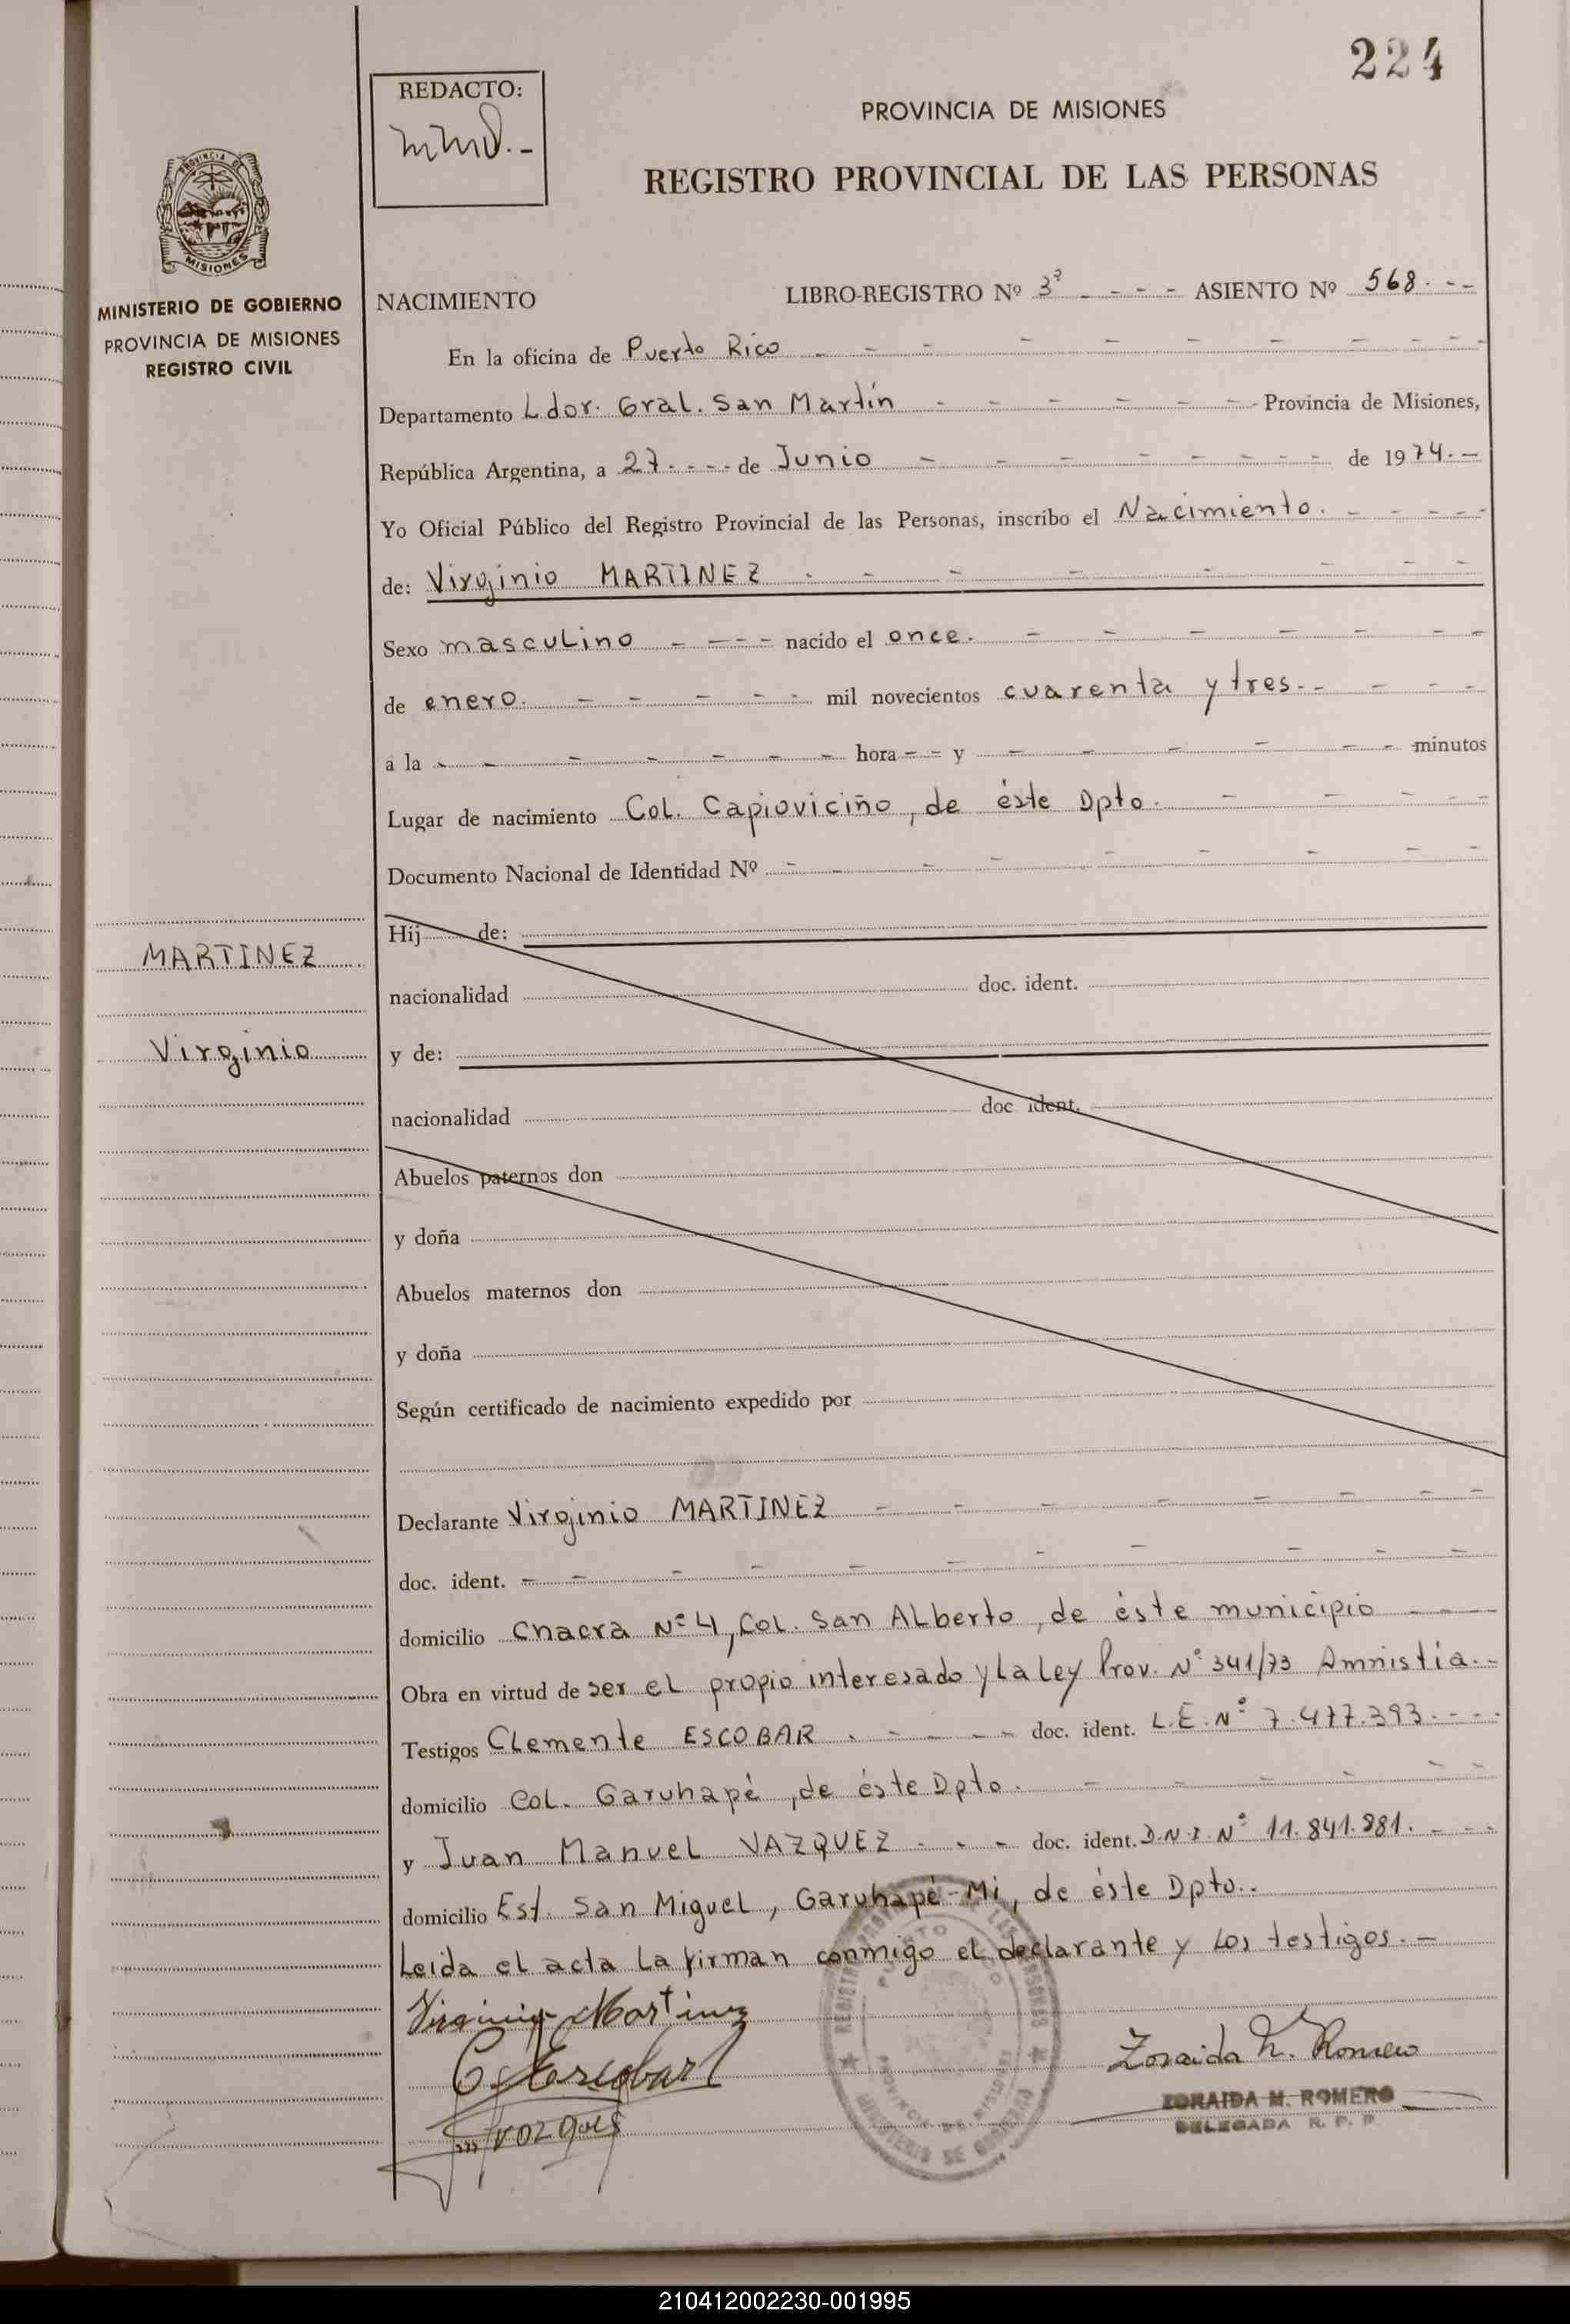 224
REDACTO:
PROVINCIA DE MISIONES
REGISTRO PROVINCIAL DE LAS PERSONAS
MISIONES
MINISTERIO DE GOBIERNO
PROVINCIA DE MISIONES
REGISTRO CIVIL
NACIMIENTO LIBRO-REGISTRO Nº 3º - - - - ASIENTO Nº 568. - -
En la oficina de Puerto Rico
Departamento Ldor. Gral. San Martín - - - - - - Provincia de Misiones,
República Argentina, a 27. - - - - de Junio - - - - - - - de 1974. -
Yo Oficial Público del Registro Provincial de las Personas, inscribo el Nacimiento. - - - -
de: Virginio MARTINEZ
Sexo masculino - - - - nacido el once. - - - - - - -
de enero. - - - - - - mil novecientos cuarenta y tres. - - - -
a la - - - - - - hora - - y - - - - - - minutos
Lugar de nacimiento Col. Capioviciño, de éste Dpto. - - - -
Documento Nacional de Identidad Nº - - - - - - - -
Hij de:
MARTINEZ
nacionalidad doc. ident.
Virginio
y de:
nacionalidad doc ident.
Abuelos paternos don
y doña
Abuelos maternos don
y doña
Según certificado de nacimiento expedido por
Declarante Virginio MARTINEZ - - - - - - - -
doc. ident. - - - - - - - - - - -
domicilio Chacra Nº 4, Col. San Alberto, de éste municipio - -
Obra en virtud de ser el propio interesado y la Ley Prov. Nº 341/73 Amnistía. -
Testigos Clemente ESCOBAR - - - - - doc. ident. L.E. Nº 7.477.393. - - -
domicilio Col. Garuhapé, de éste Dpto. - - - - - -
y Juan Manuel VAZQUEZ - - - doc. ident. D.N.I. Nº 11.841.981. - - -
domicilio Est. San Miguel, Garuhapé-Mi, de éste Dpto..
Leida el acta la firman conmigo el declarante y los testigos. -
Virginio Martinez
C Escobar
Zoraida M. Romero
ZORAIDA M. ROMERO
DELEGADA R. P. P
210412002230-001995